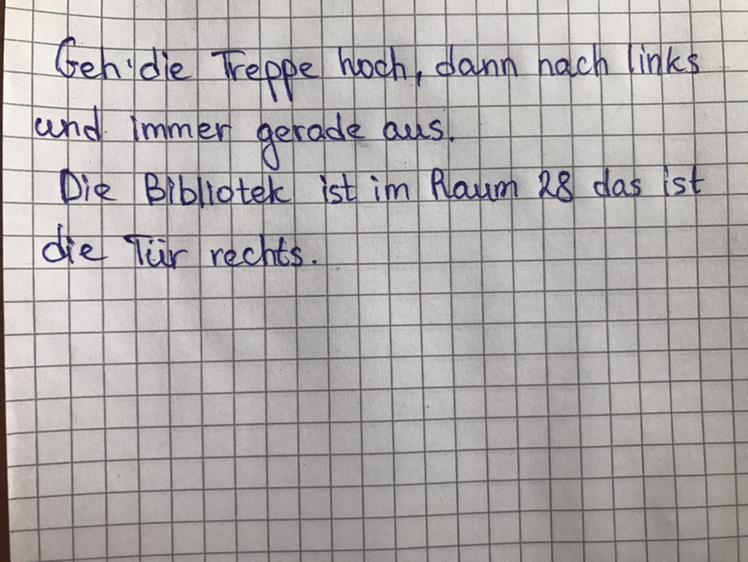 Geh' die Treppe hoch, dann nach links
und immer gerade aus.
Die Bibliotek ist im Raum 28 das ist
die Tür rechts.